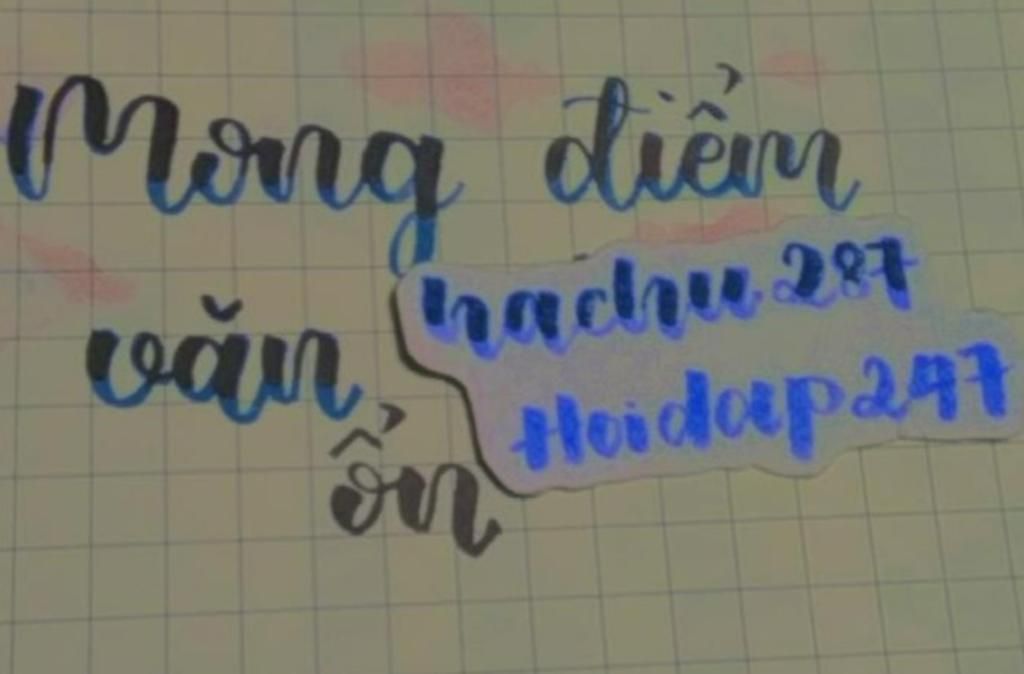 Mong điểm
văn
ổn
hachu287
Hoidap247